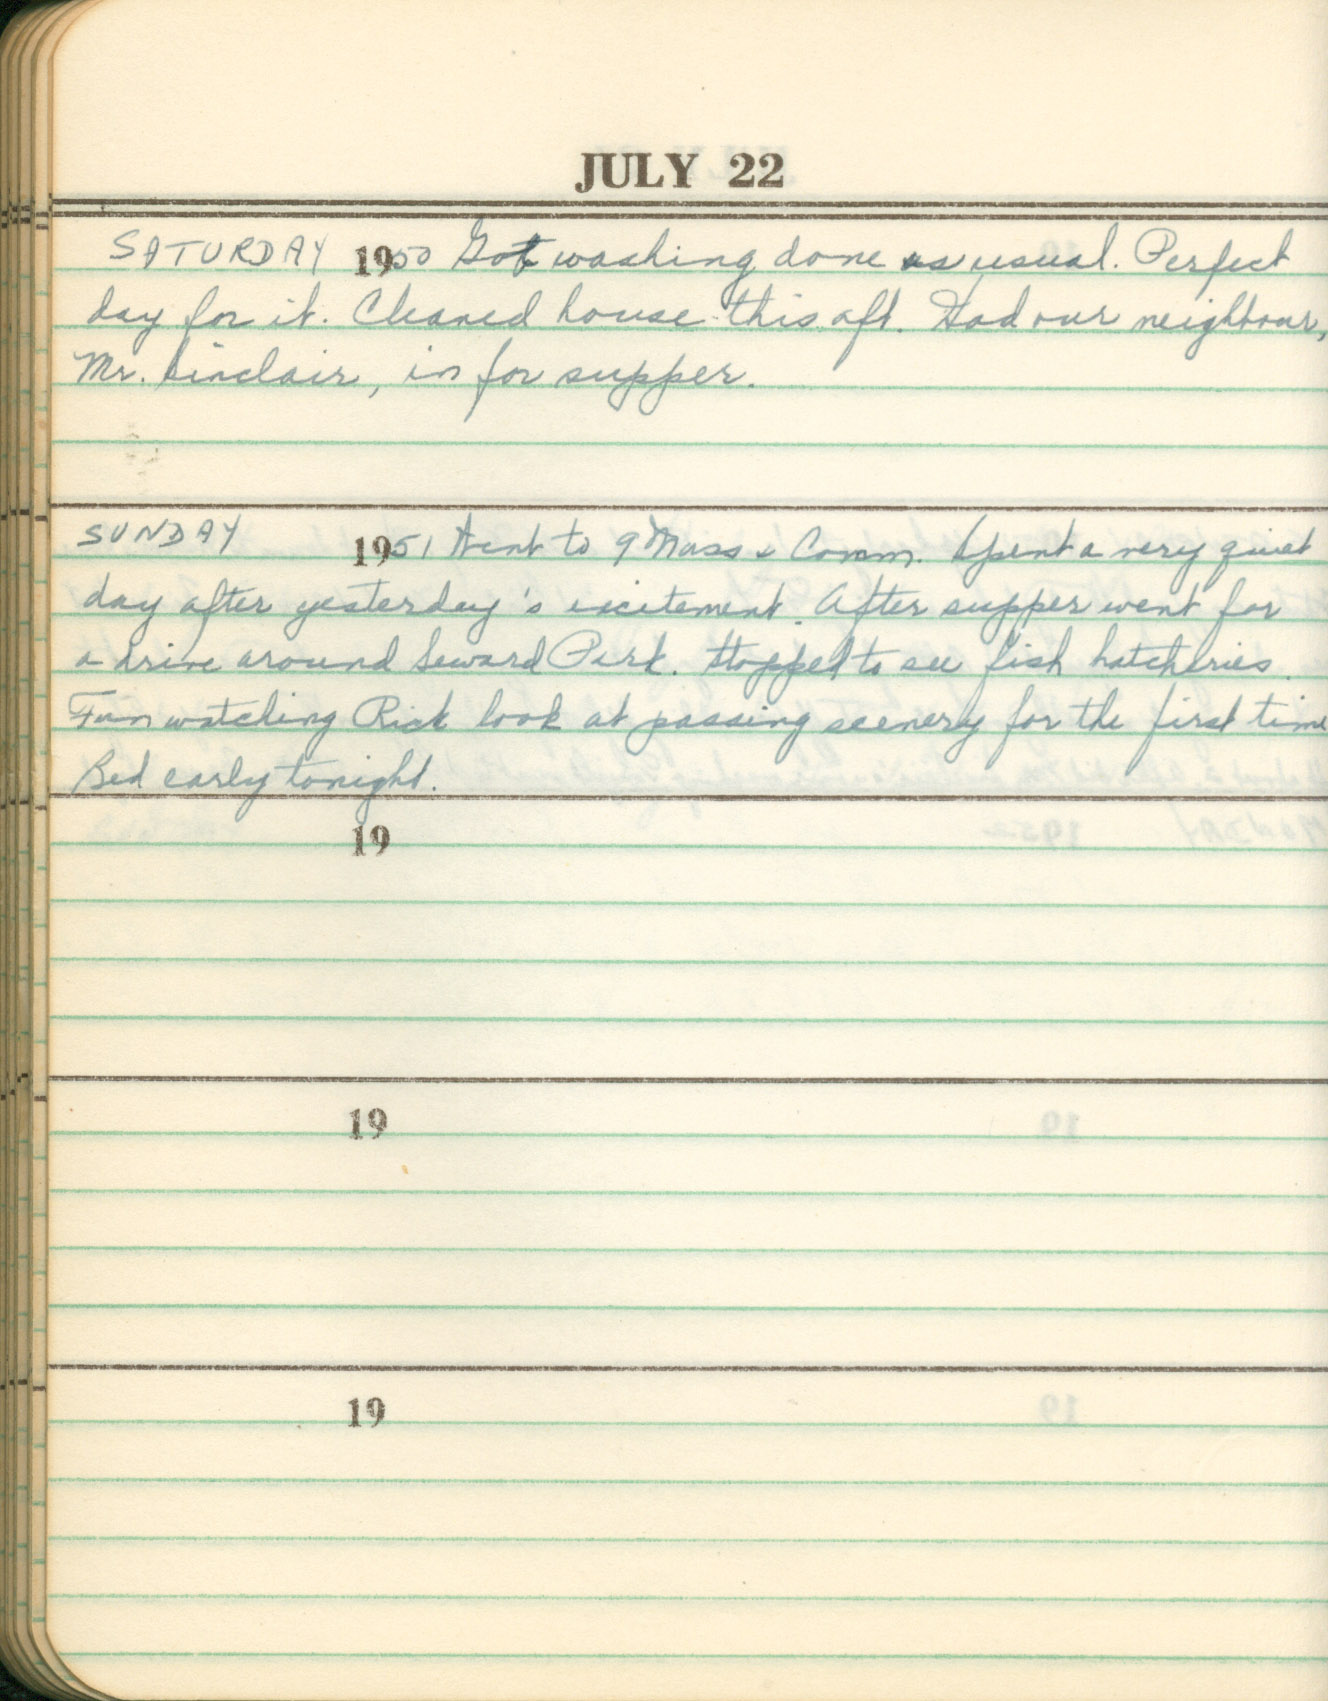 JULY 22
SATURDAY 1950 Got washing done as usual. Perfect
day for it. Cleaned house this aft. Had our neighbour,
Mr. Sinclair, in for supper.
SUNDAY 1951 Went to 9 Mass & Comm. Spent a very quiet
day after yesterday's excitement. After supper went for
a drive around Seward Park. Stopped to see fish hatcheries.
Fun watching Rick look at passing scenery for the first time
Bed early tonight.
19
19
19